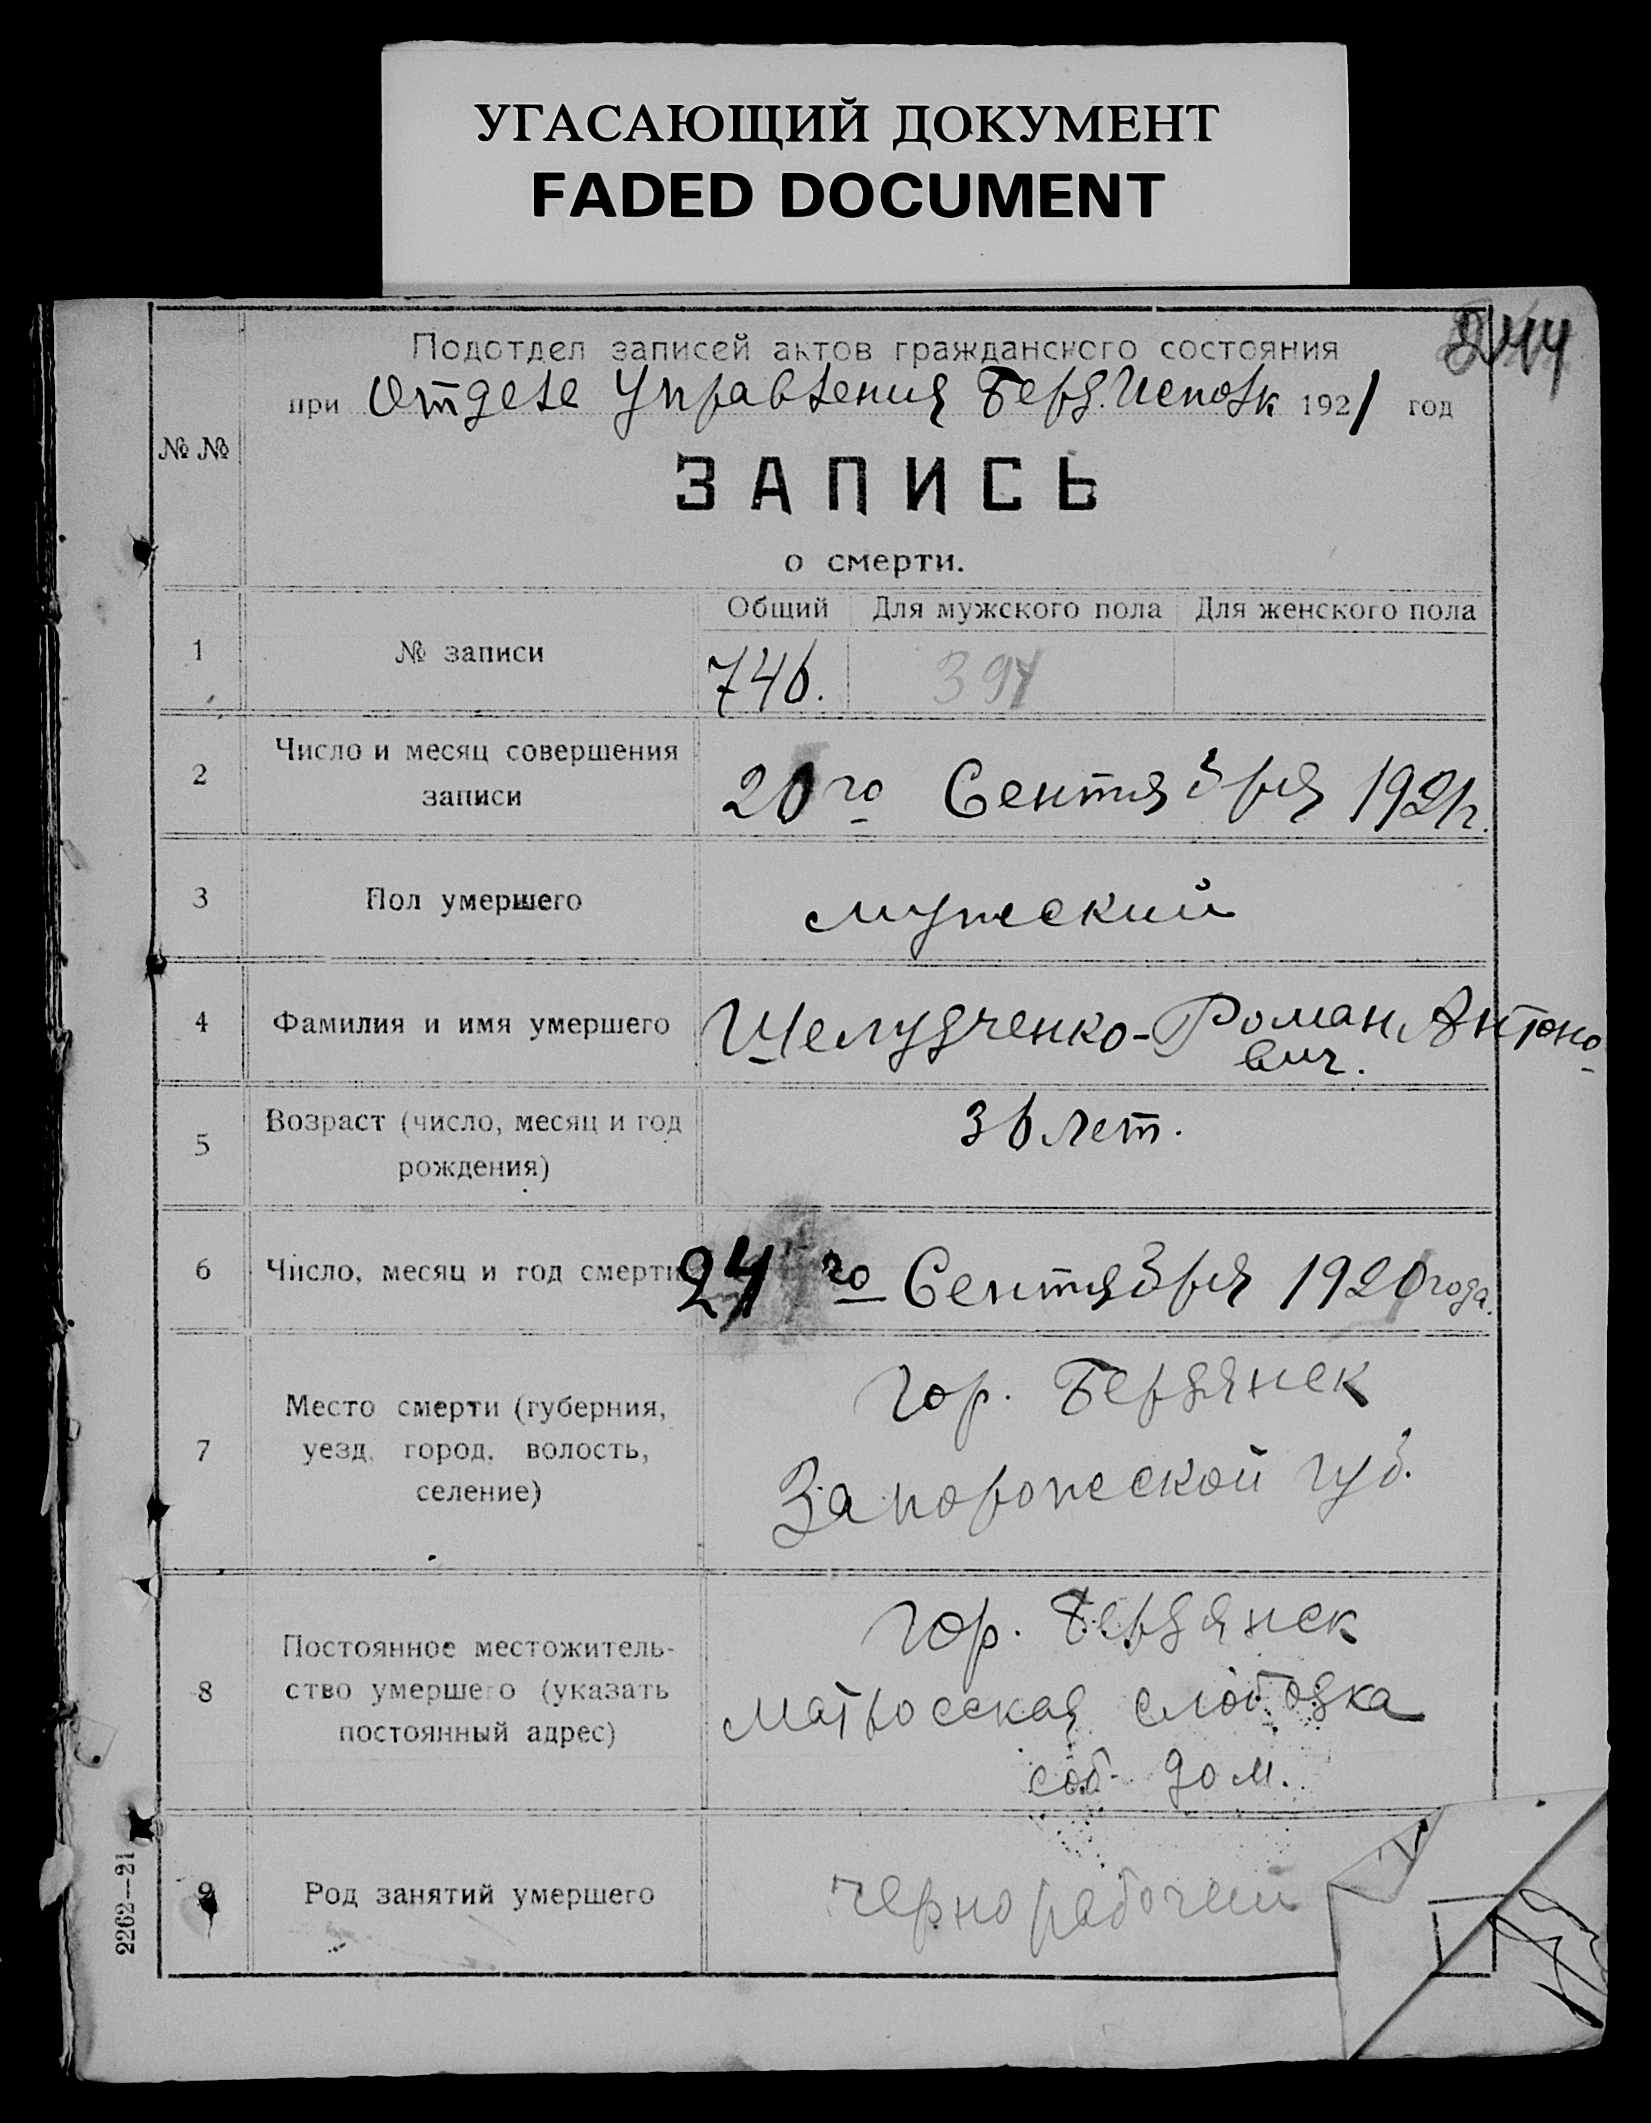 УГАСАЮЩИЙ ДОКУМЕНТ
FADED DOCUMENT
Подотдел записей актов гражданского состояния
при Отделе Управления Берд. Исполк 1921 год
№ №
ЗАПИСЬ
о смерти.
Общий Для мужского пола Для женского пола
1 № записи 746. 394
2 Число и месяц совершения
записи
го Сентября 1921г.
3 Пол умершего мужеский
4 Фамилия и имя умершего Шелудченко-Роман Антоно
вич.
5 Возраст (число, месяц и год
рождения)
36 лет.
6 Число, месяц и год смерти го Сентября 1921 года.
7 Место смерти (губерния,
уезд, город, волость,
селение)
гор. Бердянск
Запорожеской губ.
8 Постоянное местожитель-
ство умершего (указать
постоянный адрес)
гор. Бердянск
матросская слободка
соб. дом.
9 Род занятий умершего чернорабочий
2262—21